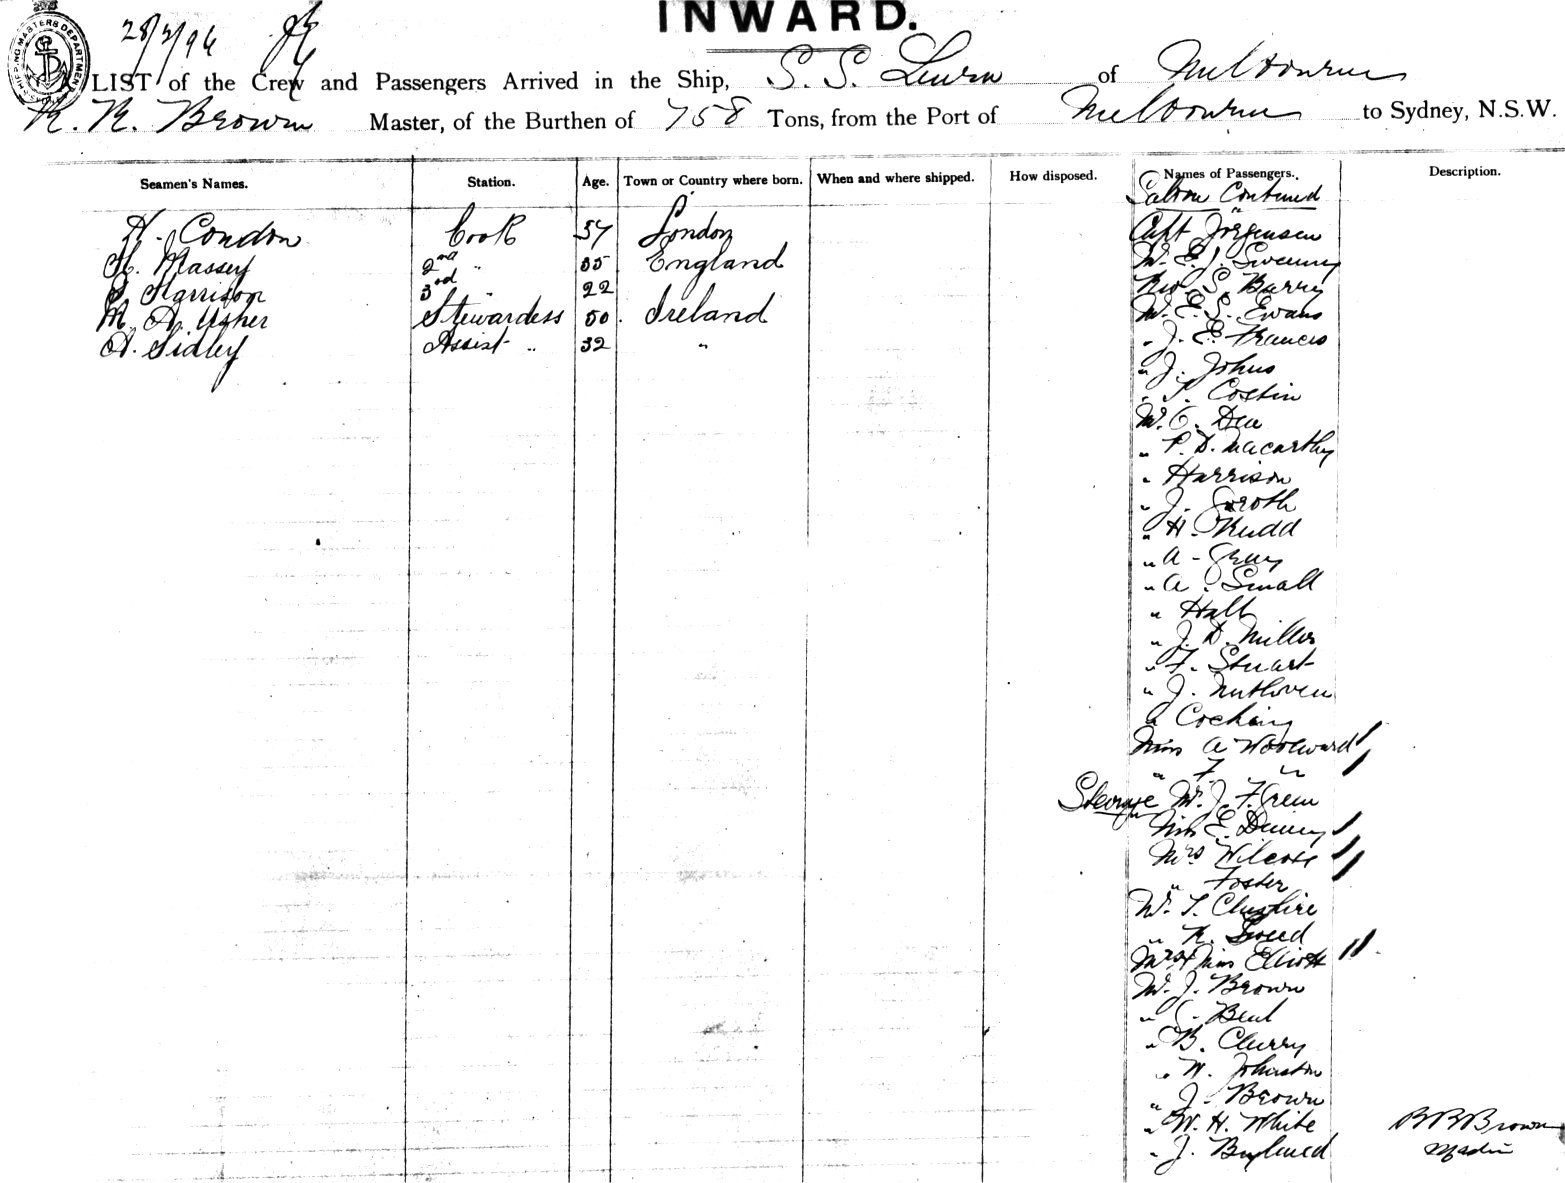 INWARD.
28/2/96
LIST of the Crew and Passengers Arrived in the Ship, S. S. of Melbourne
R. R. Brown Master, of the Burthen of 758 Tons, from the Port of Melbourne to Sydney, N.S.W.
Seamen's Names. Station. Age. Town or Country where born. When and where shipped. How disposed. Names of Passengers. Description.
Saloon Continued
H. Condon Cook 37 London
H. Massey 2nd " 35 England
Harrison 3rd 22 "
M. A. Usher Stewardess 50 Ireland
A. Sidley Assist " 32 "
Capt Jorgensen
Mr. E. J. Sweeney
Rev. S. Barry
Mr. E. S. Evans
" J. E. Francis
" J. Johns
" T. Costin
Mr. O. Dea
" P. D. Macarthy
" Harrison
" J. Groth
" H. Rudd
" A. Gray
" A. Small
" Hall
" J. D. Miller
" F. Stuart
" J. Ruthven
" Cocking
Miss A Woolward
" F. "
Steerage Mr. J. F. Green
Miss E. Denny
Mrs Wilcox
" Foster
Mr. T. Cheshire
" R. Sneed
Mrs & Miss Elliott
Mr. J. Brown
" Bent
" B. Cherry
" W. Johnston
" J. Brown
" W. H. White
" J.
Brown
Master